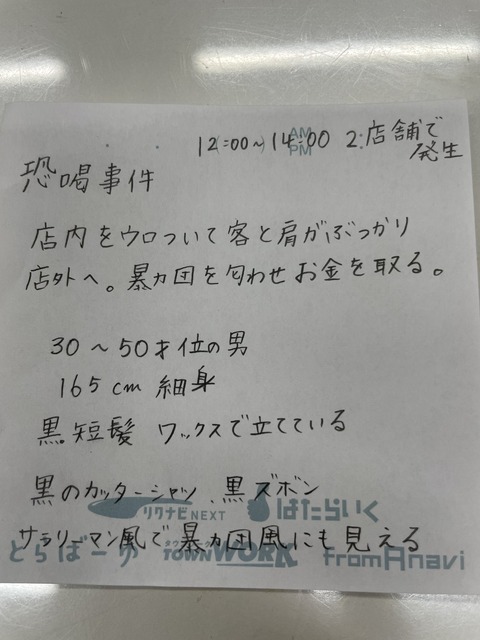 12:00~14:00 2店舗で
発生
AM
PM
恐喝事件
店内をウロついて客と肩がぶつかり
店外へ。暴力団を匂わせお金を取る。
30～50才位の男
165cm 細身
黒短髪 ワックスで立てている
黒のカッターシャツ、黒ズボン
リクナビNEXT はたらいく
サラリーマン風で暴力団風にも見える
とらばーゆ TOWNWORK fromAnavi